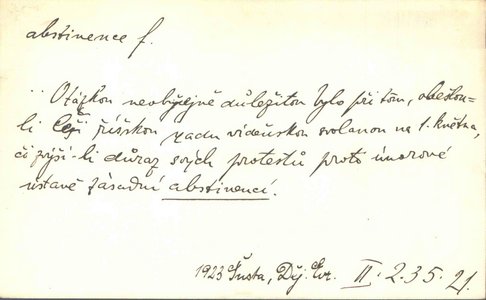 abstinence f.
.. Otázkou neobyčejně důležitou bylo při tom, obešlou-
li Češi říšskou radu vídeňskou svolanou na 1. května,
či zvýší-li důraz svých protestů proti únorové
ústavě zásadní abstinencí.
1923 Šusta, Děj. Evr. II. 2. 35. 21.